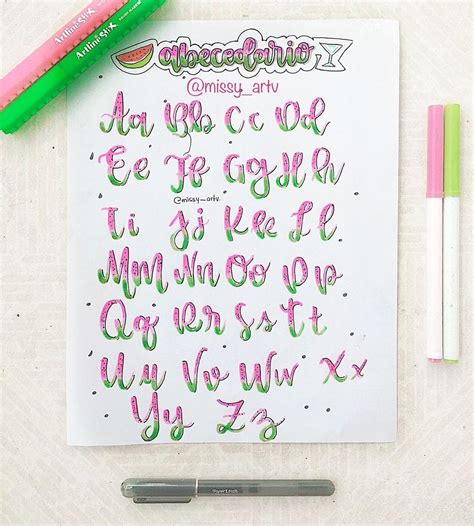 Artline Stix
Artline Stix
abecedario
@missy_artv
Aa Bb Cc Dd
Ee Ff Gg Hh
@missy_artv
Ii Jj Kk Ll
Mm Nn Oo Pp
Qq Rr Ss Tt
Uu Vv Ww Xx
Yy Zz